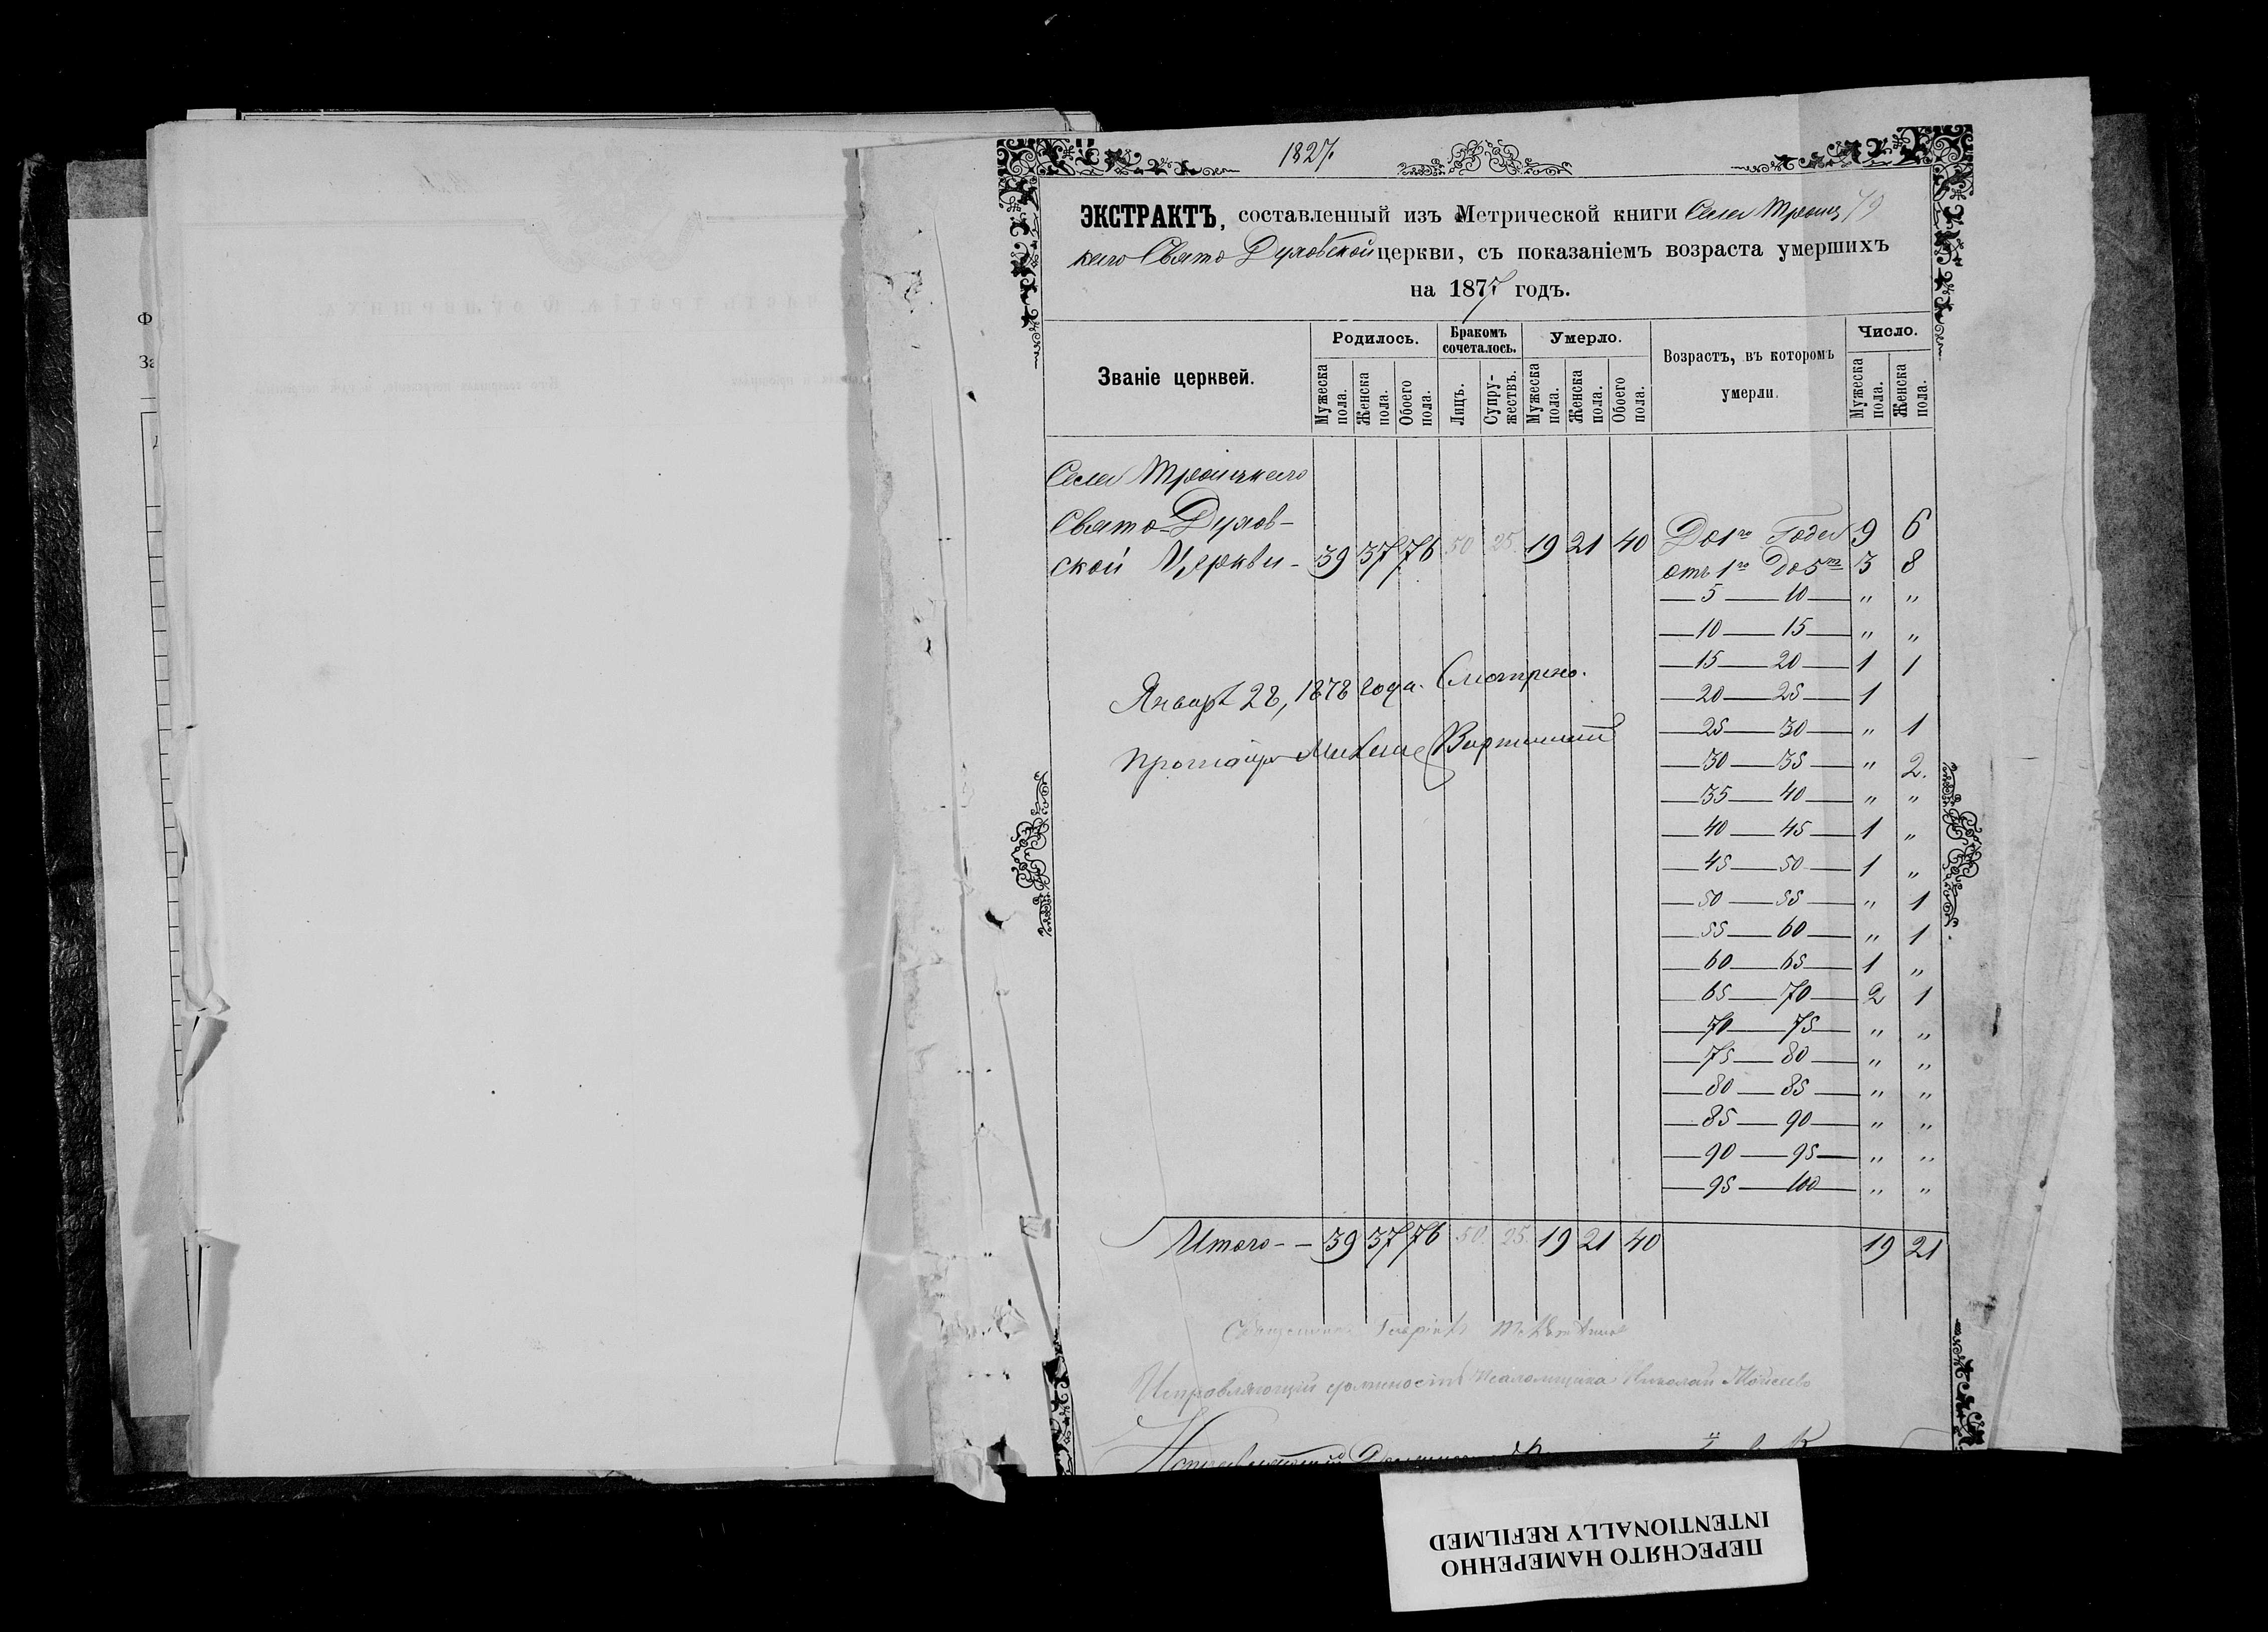 1827.
79
ЭКСТРАКТЪ, составленный изъ Метрической книги Села Троиц
каго Свято Духовской церкви, съ показаніемъ возраста умершихъ
на 1877 годъ.
Званіе церквей.
Родилось.
Бракомъ сочеталось.
Умерло.
Возрастъ, въ которомъ умерли.
Число.
Мужеска пола.
Женска пола.
Обоего пола.
Лицъ.
Супружествъ.
Мужеска пола.
Женска пола.
Обоего пола.
Мужеска пола.
Женска пола.
Села Троицкаго
Свято-Духов-
ской Церкви - 39 37 76 50 25. 19 21 40
До 1го Года 9 6
отъ 1го До 5ти 3 8
— 5 — 10 — " "
— 10 — 15 — " "
— 15 — 20 — 1 1
— 20 — 25 — 1
— 25 — 30 — " 1
— 30 — 35 — " 2.
— 35 — 40 — " "
— 40 — 45 — 1 "
— 45 — 50 — 1 "
— 50 — 55 — " 1
— 55 — 60 — " 1
— 60 — 65 — 1 "
— 65 — 70 — 2 1
— 70 — 75 — " "
— 75 — 80 — " "
— 80 — 85 — " "
— 85 — 90 — " "
— 90 — 95 — " "
— 95 — 100 — " "
Января 28, 1878 года. Смотрено.
Протоіерей Михаилъ
Итого - - 39 37 76 50. 25. 19 21 40 19 21
Священникъ
Исправляющій должность Псаломщика Николай
Исправляющій
ПЕРЕСНЯТО НАМЕРЕННО
INTENTIONALLY REFILMED